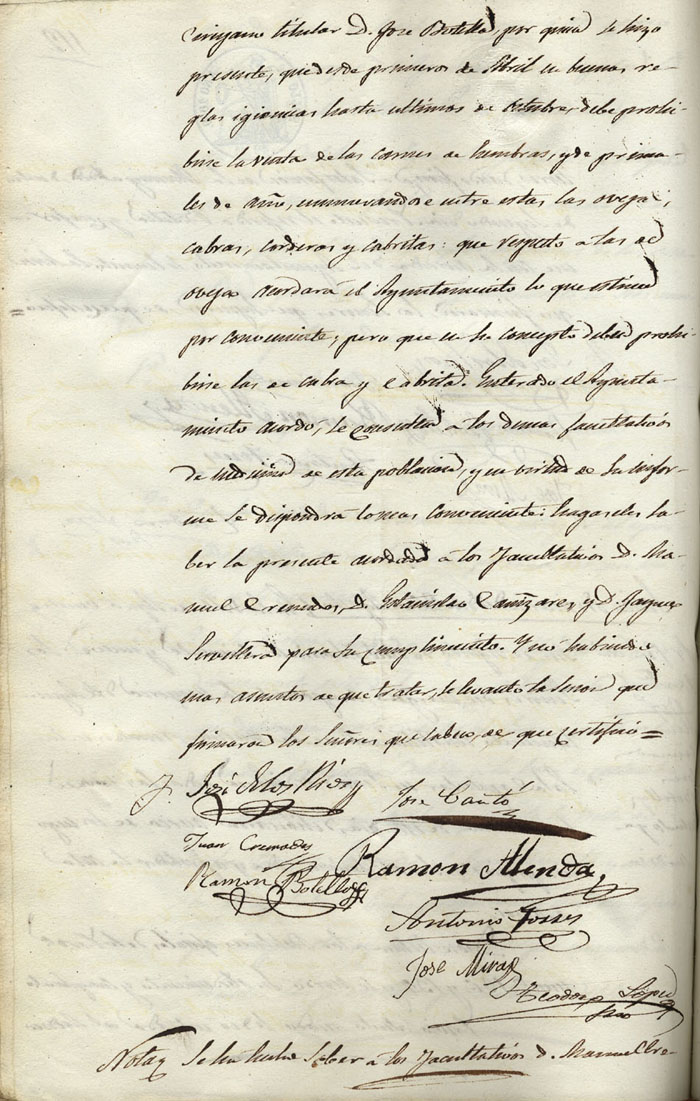 Cirujano titular D. Jose Botella, por quien se hizo
presente, que desde primeros de Abril en buenas re-
glas igienicas hasta ultimos de Octubre, debe prohi-
birse la venta de las carnes de hembras, y de prima-
les de año, enumerandose entre estas las ovejas,
cabras, corderas y cabritas: que respecto a las de
ovejas acordará el Ayuntamiento lo que estime
por conveniente; pero que en su concepto deben prohi-
birse las de cabra y cabrita. Enterado el Ayunta-
miento acordó, se consulten a los demas facultativos
de medicina de esta poblacion, y en virtud de su infor-
me se dispondrá lo mas conveniente: hagaseles sa-
ber la presente acordada á los facultativos D. Ma-
nuel Cremades, D. Estanislao Cañizares, y D. Jayme
para su cumplimiento. Y no habiendo
mas asuntos de que tratar, se levanto la sesion que
firmaron los Señores que saben, de que certifico=
José de los Rios
Jose Cantó
Juan Cremades
Ramon Botella
Ramon Menda
Antonio Torres
Jose Mira
Teodoro Lopez
Srio
Nota Se ha hecho saber a los facultativos D. Manuel Cre-